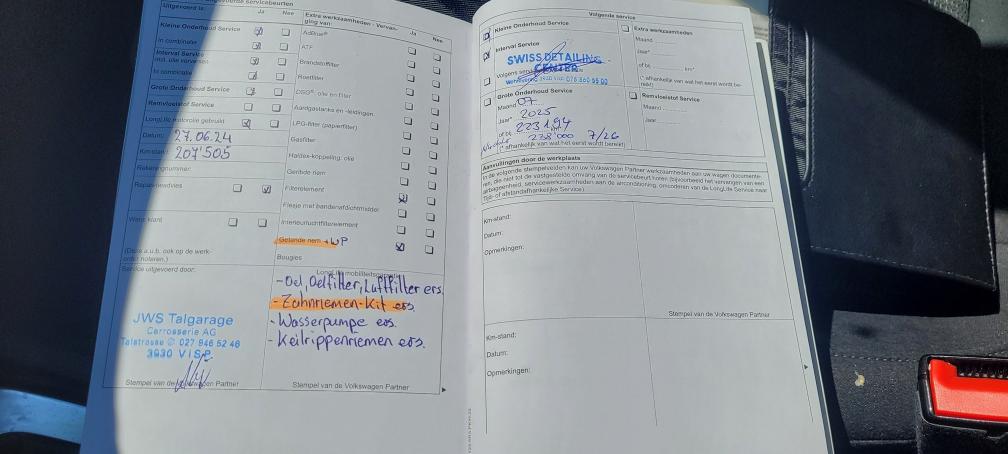 Uitgevoerd is:
Ja
Nee
Kleine Onderhoud Service
in combinatie
Interval Service
incl. olie verversen
In combinatie
Grote Onderhoud Service
Remvloeistof Service
LongLife motorolie gebruikt
Datum: 27.06.24
Km-stand: 207'505
Rekeningnummer:
Reparatieadvies
Wens klant
(Deze a.u.b. ook op de werk-
order noteren.)
Service uitgevoerd door:
JWS Talgarage
Carrosserie AG
Talstrasse 027 946 52 46
3930 VISP
Stempel van de Volkswagen Partner
Extra werkzaamheden - Vervan-
ging van:
Ja
Nee
AdBlue®
ATF
Brandstoffilter
Roetfilter
DSG®: olie en filter
Aardgastanks en -leidingen
LPG-filter (papierfilter)
Gasfilter
Haldex-koppeling: olie
Geribde riem
Filterelement
Flesje met bandenafdichtmiddel
Interieurluchtfilterelement
Getande riem + WP
Bougies
LongLife mobiliteitsgarantie
- Oel, Oelfilter, Luftfilter ers.
- Zahnriemen-Kit ers.
- Wasserpumpe ers.
- Keilrippenriemen ers.
Stempel van de Volkswagen Partner
Volgende service
Kleine Onderhoud Service
Interval Service
Volgens
SWISS DETAILING
CENTER
076 360 55 00
Grote Onderhoud Service
Maand 07
Jaar* 2025
of bij 223194
238'000 7/26
(* afhankelijk van wat het eerst wordt bereikt)
Extra werkzaamheden
Maand
Jaar*
of bij km*
(* afhankelijk van wat het eerst wordt be-
reikt)
Remvloeistof Service
Maand
Jaar
Aanvullingen door de werkplaats
In de volgende stempelvelden kan uw Volkswagen Partner werkzaamheden aan uw wagen documente-
ren, die niet tot de vastgestelde omvang van de servicebeurt horen (bijvoorbeeld het vervangen van een
arbeidsgenheid, servicewerkzaamheden aan de airconditioning, omcoderen van de LongLife Service naar
Tijd- of afstandsafhankelijke Service).
Km-stand:
Datum:
Opmerkingen:
Stempel van de Volkswagen Partner
Km-stand:
Datum:
Opmerkingen: